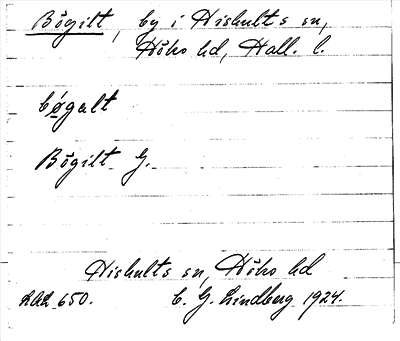 Bögilt, by i Hishults sn,
Höks hd, Hall. l.
bǿgalt
Bögilt G.
Hishults sn, Höks hd
LAL 650. C. G. Lindberg 1924.